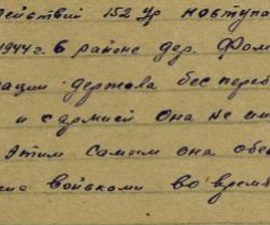 действий 152 Ур наступа
1944 г. в районе дер. Фом
рации держала бес переб
и с армией она не им
Этим самым она обес
ние войсками во время